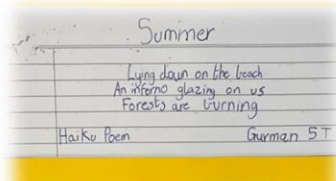 Summer
Lying down on the beach
An inferno glazing on us
Forests are burning
Haiku Poem Gurman 5T